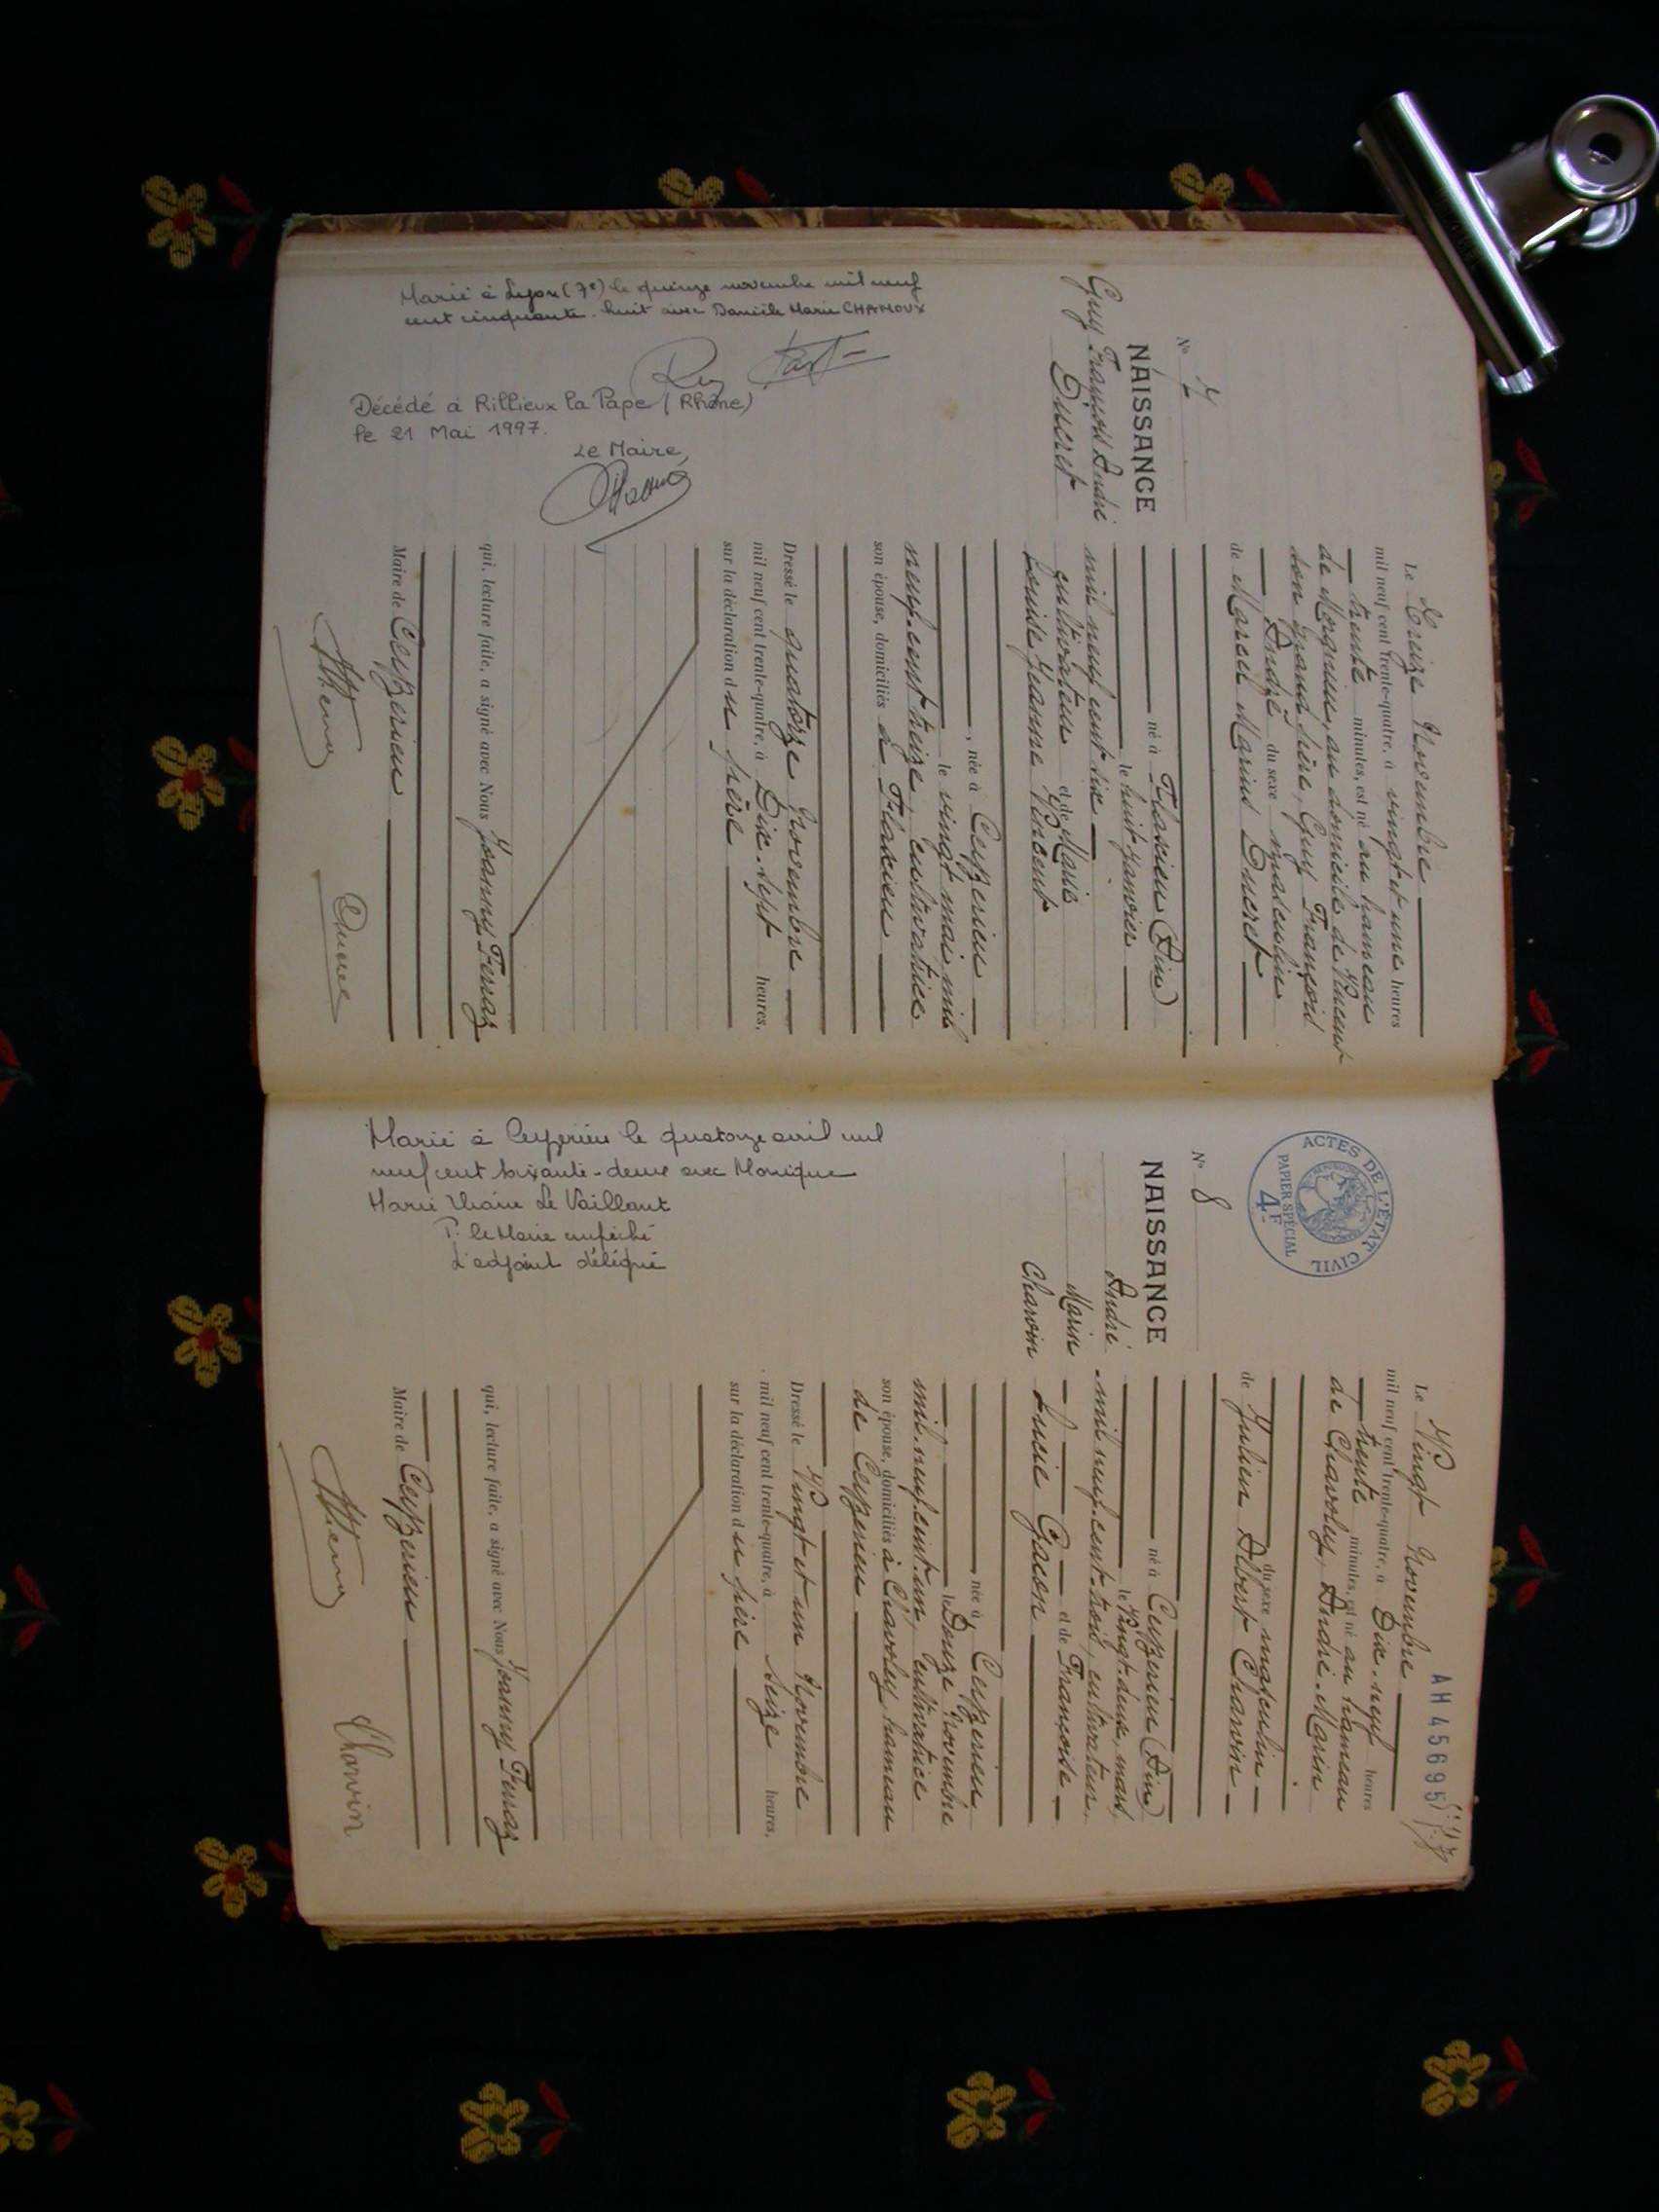 N° 7
NAISSANCE
Guy François André
Ducret
Le Treize Novembre
mil neuf cent trente-quatre, à vingt et une heures
trente minutes, est né au hameau
de Morgnieu, au domicile de Vincent
son grand père, Guy François
André du sexe masculin
de Marcel Marius Ducret
né à Flaxieu (Ain)
le huit janvier
mil neuf cent dix
cultivateur et de Marie
Louise Jeanne Vincent
, née à Ceyzerieu
le vingt mai mil
neuf cent treize, cultivatrice
son épouse, domiciliés à Flaxieu
Dressé le quatorze Novembre
mil neuf cent trente-quatre, à Dix-sept heures,
sur la déclaration du père
qui, lecture faite, a signé avec Nous Joanny Tussaz
Maire de Ceyzerieu
Ducret
Marié à Lyon (7e) le quinze novembre mil neuf
cent cinquante-huit avec Danièle Marie CHAMOUX
Décédé à Rillieux la Pape (Rhône)
le 21 Mai 1997.
Le Maire,
ACTES DE L'ÉTAT CIVIL
PAPIER SPÉCIAL
4F
AH45695
N° 8
NAISSANCE
André
Marin
Charvin
Le Vingt Novembre
mil neuf cent trente-quatre, à Dix-neuf heures
trente minutes, est né au hameau
de Chavoley, André Marin
du sexe masculin
de Julien Albert Charvin
né à Ceyzerieu (Ain)
le Vingt-deux, mars,
mil neuf cent trois, cultivateur
et de Françoise
Lucie Gacon
née à Ceyzerieu,
le Douze Novembre
mil neuf cent un, cultivatrice
son épouse, domiciliés à Chavoley hameau
de Ceyzerieu
Dressé le Vingt et un Novembre
mil neuf cent trente-quatre, à seize heures,
sur la déclaration du père
qui, lecture faite, a signé avec Nous Joanny Tussaz
Maire de Ceyzerieu
Charvin
Marié à Ceyzerieu le quatorze avril mil
neuf cent soixante-deux avec Monique
Marie Le Vaillant
P. le Maire empêché
L'adjoint délégué